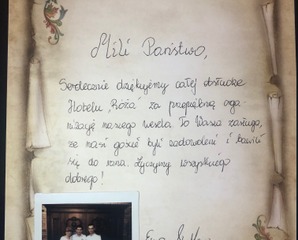 Mili Państwo,
Serdecznie dziękujemy całej obsłudze
Hotelu "Róża" za przepiękną orga
nizację naszego wesela. To Wasza zasługa,
że nasi goście byli zadowoleni i bawili
się do rana. Życzymy wszystkiego
dobrego!
Ewa